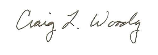 Craig L. Woody